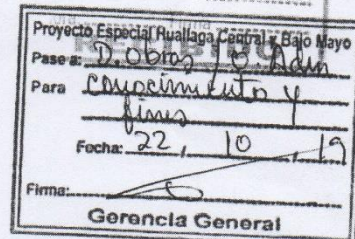 Proyecto Especial Huallaga Central y Bajo Mayo
Pase a: D. Obras / O. Adm
Para conocimiento y
fines
Fecha: 22, 10, 19
Firma:
Gerencia General